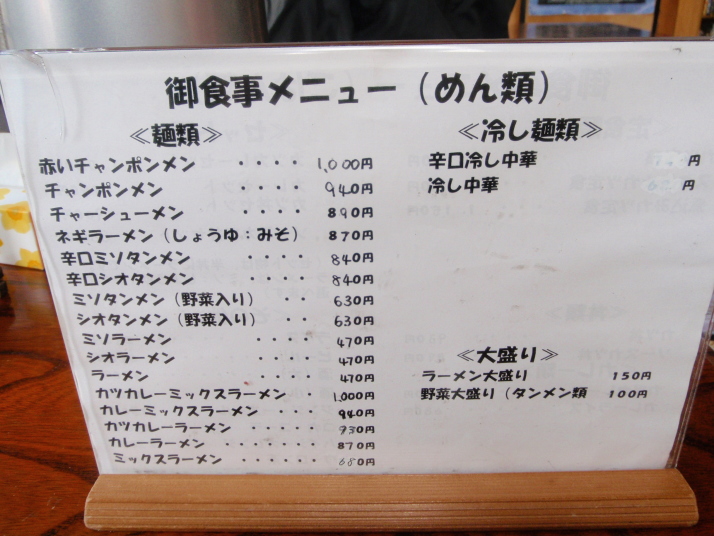 御食事メニュー（めん類）
≪麺類≫
赤いチャンポンメン ・・・・ 1,000円
チャンポンメン ・・・・ 940円
チャーシューメン ・・・・ 890円
ネギラーメン（しょうゆ：みそ） 870円
辛口ミソタンメン ・・・・ 840円
辛口シオタンメン ・・・・ 840円
ミソタンメン（野菜入り） ・・ 630円
シオタンメン（野菜入り） ・・ 630円
ミソラーメン ・・・・ 470円
シオラーメン ・・・・ 470円
ラーメン ・・・・ 470円
カツカレーミックスラーメン・ 1,000円
カレーミックスラーメン ・・・ 940円
カツカレーラーメン ・・・・・ 930円
カレーラーメン ・・・・・・・ 870円
ミックスラーメン ・・・・・ 680円
≪冷し麺類≫
辛口冷し中華 円
冷し中華 円
≪大盛り≫
ラーメン大盛り 150円
野菜大盛り（タンメン類 100円